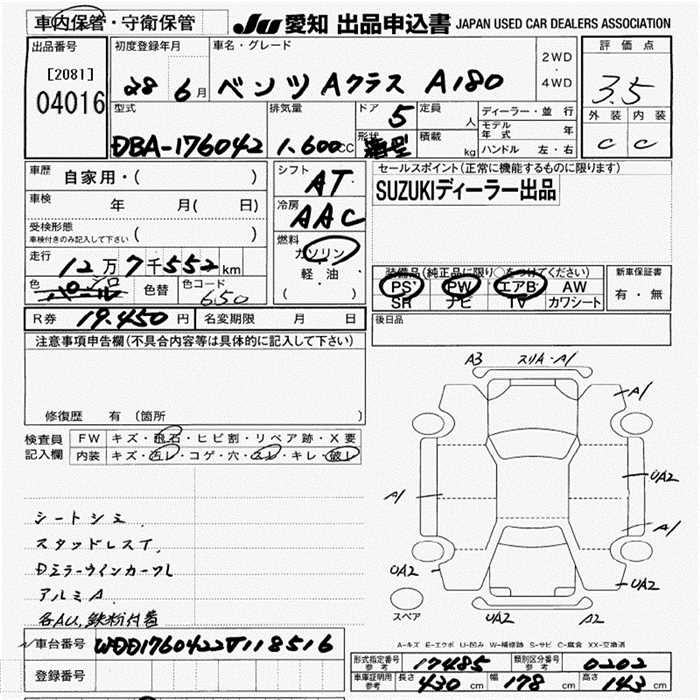 車内保管・守衛保管
JU 愛知 出品申込書 JAPAN USED CAR DEALERS ASSOCIATION
出品番号 初度登録年月 車名・グレード 評価点
[2081] 2WD
04016 28 6月 ベンツ Aクラス A180 ・ 4WD 3.5
型式 排気量 ドア 5 定員 人 ディーラー・並行 外装 内装
モデル年式 年
DBA-176042 1,600cc 形状 積載 kg ハンドル 左・右 C C
車歴 自家用・( ) シフト AT セールスポイント(正常に機能するものに限ります)
SUZUKIディーラー出品
車検 年 月( 日) 冷房 AAC
受検形態 ( )
車検付きのみ記入して下さい
燃料
走行 12万7千552km ガソリン
軽・油 装備品(純正品に限り○をつけてください) 新車保証書
色 パール クロ 色替 色コード 650 ( ) PS PW エアB AW 有・無
SR ナビ TV カワシート
R券 19.450円 名変期限 月 日 後日品
注意事項申告欄(不具合内容等は具体的に記入して下さい)
修復歴 有 (箇所 )
検査員 FW キズ・飛石・ヒビ割・リペア跡・X要
記入欄 内装 キズ・汚レ・コゲ・穴・スレ・キレ・破レ
A3 スリA・A1
A1
UA2
A1
A1
UA2
UA2
スペア
UA2
A2
シートシミ
スタッドレスT
Dミラーウインカーワレ
アルミA
各AU,鉄粉付着
A-キズ E-エクボ U-凹み W-補修跡 S-サビ C-腐食 XX-交換済
車台番号 WDD1760422V118516
登録番号
形式指定番号 参考 17485 類別区分番号 参考 0202
車庫証明用 参考 長さ 430cm 幅 178cm 高さ 143cm